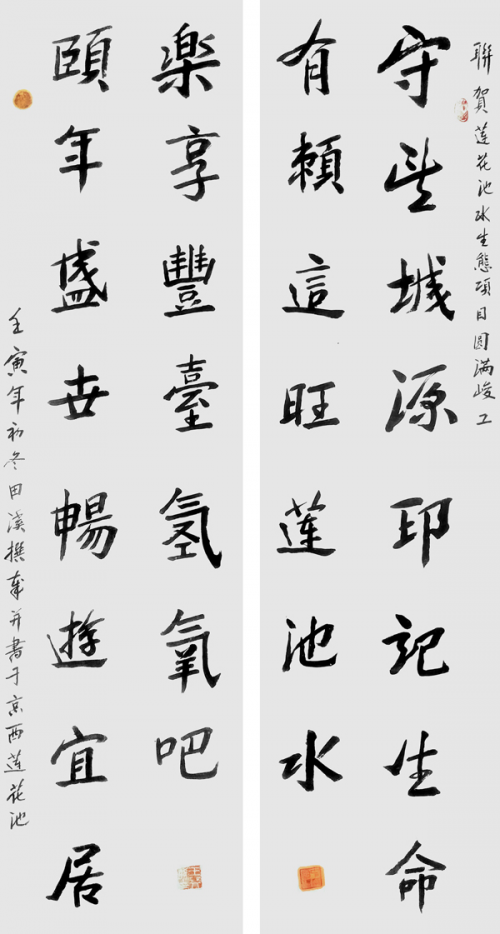 聯賀莲花池水生態项目圆满峻工
守望城源印記生命
有賴這旺莲池水
頤年盛世暢遊宜居
楽享豐臺氢氧吧
壬寅年初冬田溪撰奉并書于京西莲花池